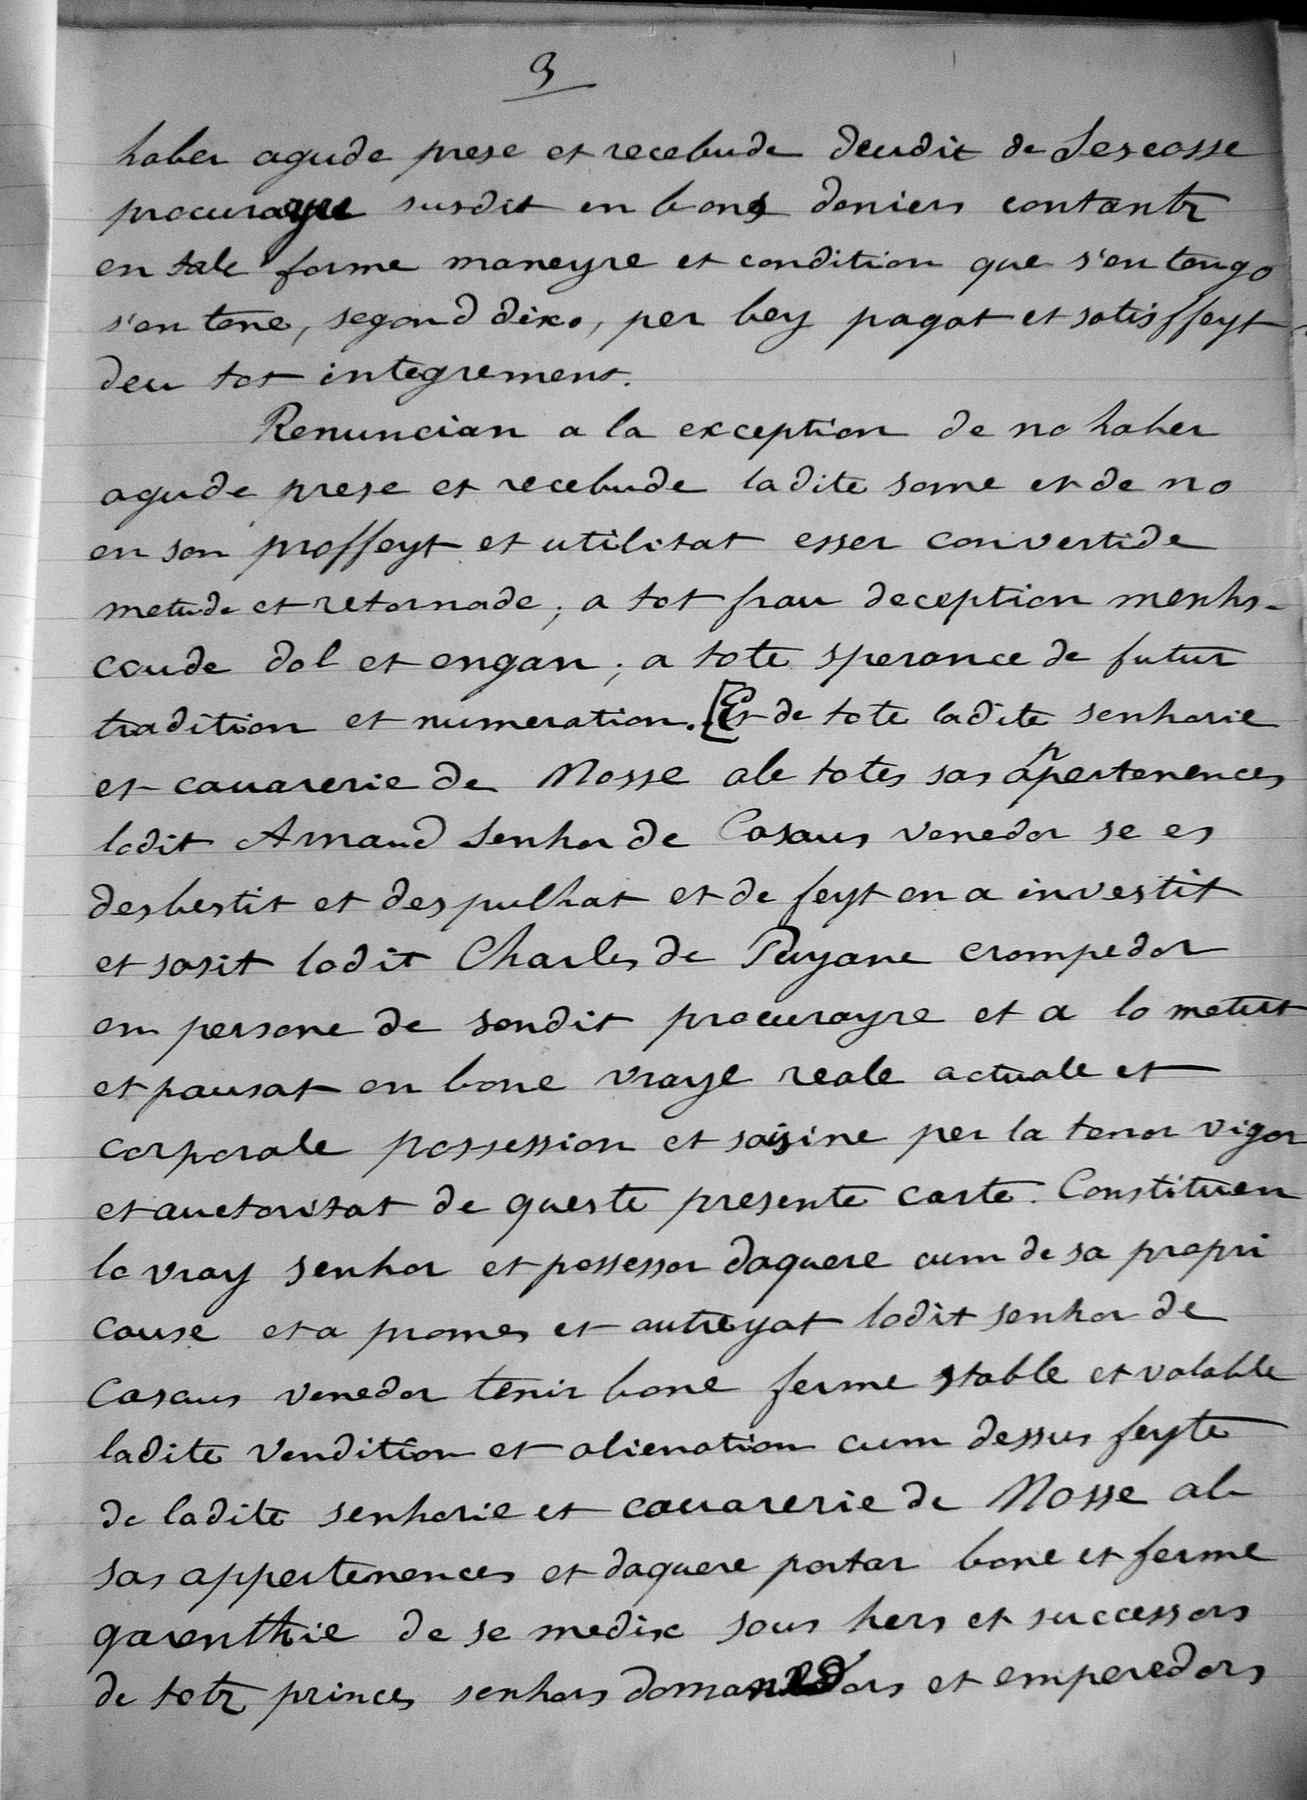 3
haber agude prese et recebude deudit de Lescosse
procurayre susdit en bons deniers contantz
en tale forme maneyre et condition que s'en tengo
s'en tene, segond dixo, per bey pagat et satisffeyt
deu tot integrement.
Renuncian a la exception de no haber
agude prese et recebude ladite some et de no
en son proffeyt et utilitat esser convertide
metude et retornade; a tot frau deception menhs-
caude dol et engan; a tote sperance de futur
tradition et numeration. [Et de tote ladite senhorie
et cauarerie de Mosse ab totes sas appertenences
lodit Arnaud Senhor de Casaus venedor se es
desbestit et despulhat et de feyt en a investit
et sasit lodit Charles de Puyane crompedor
en persone de sondit procurayre et a lo metut
et pausat en bone vraye reale actuale et
corporale possession et saisine per la tenor vigor
et auctoritat de queste presente carte. Constituen
lo vray senhor et possessor daquere cum de sa propri
cause et a promes et autreyat lodit senhor de
Casaus venedor tenir bone ferme stable et valable
ladite vendition et alienation cum dessus feyte
de ladite senhorie et cauarerie de Mosse ab
sas appertenences et daquere portar bone et ferme
garenthie de se medix sous hers et successors
de totz princes senhors domandadors et emperedors